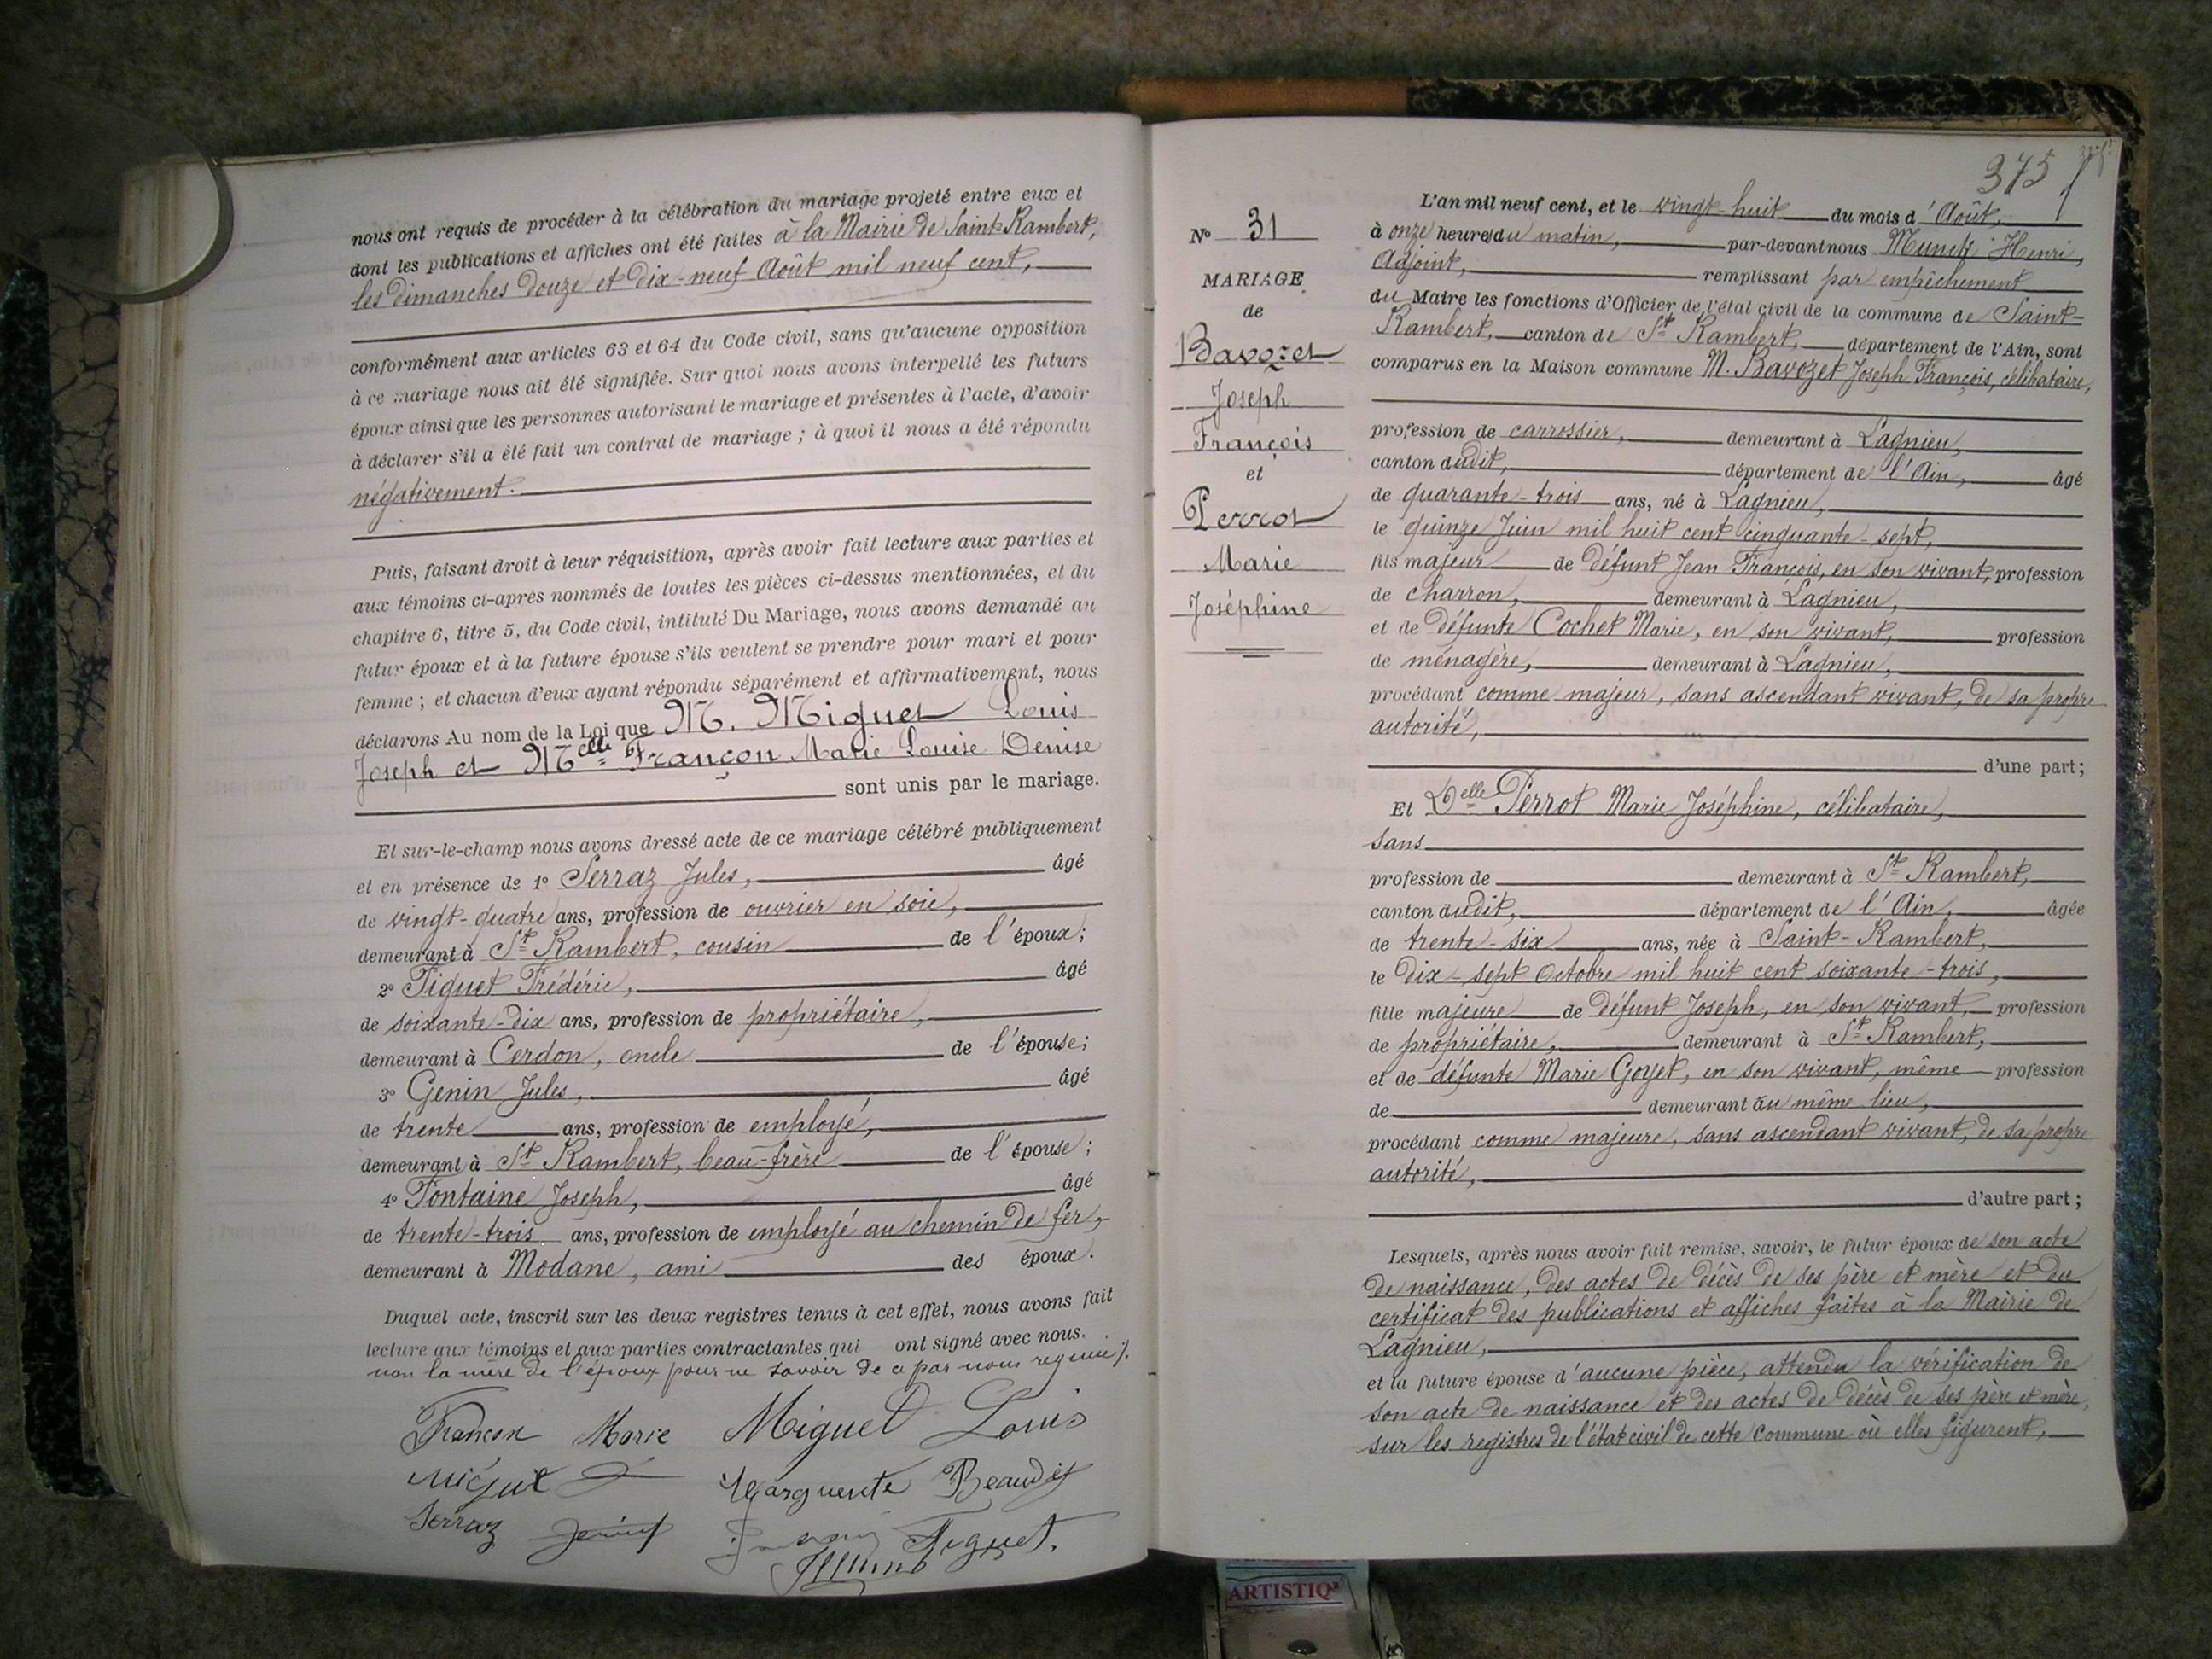 nous ont requis de procéder à la célébration du mariage projeté entre eux et
dont les publications et affiches ont été faites à la Mairie de Saint-Rambert,
les dimanches douze et dix-neuf Août mil neuf cent,
conformément aux articles 63 et 64 du Code civil, sans qu'aucune opposition
à ce mariage nous ait été signifiée. Sur quoi nous avons interpellé les futurs
époux ainsi que les personnes autorisant le mariage et présentes à l'acte, d'avoir
à déclarer s'il a été fait un contrat de mariage ; à quoi il nous a été répondu
négativement.
Puis, faisant droit à leur réquisition, après avoir fait lecture aux parties et
aux témoins ci-après nommés de toutes les pièces ci-dessus mentionnées, et du
chapitre 6, titre 5, du Code civil, intitulé Du Mariage, nous avons demandé au
futur époux et à la future épouse s'ils veulent se prendre pour mari et pour
femme ; et chacun d'eux ayant répondu séparément et affirmativement, nous
déclarons Au nom de la Loi que M. Miguet Louis
Joseph et Melle Françon Marie Louise Denise
sont unis par le mariage.
Et sur-le-champ nous avons dressé acte de ce mariage célébré publiquement
et en présence de 1° Serraz Jules, âgé
de vingt-quatre ans, profession de ouvrier en soie,
demeurant à St Rambert, cousin de l'époux;
2° Tiguet Frédéric, âgé
de soixante-dix ans, profession de propriétaire,
demeurant à Cerdon, oncle de l'épouse;
3° Genin Jules, âgé
de trente ans, profession de employé,
demeurant à St Rambert, beau-frère de l'épouse;
4° Fontaine Joseph, âgé
de trente-trois ans, profession de employé au chemin de fer,
demeurant à Modane, ami des époux.
Duquel acte, inscrit sur les deux registres tenus à cet effet, nous avons fait
lecture aux témoins et aux parties contractantes qui ont signé avec nous.
non la mère de l'époux pour ne savoir de ce par nous requise).
Françon Marie Miguet Louis
Miguet Marguerite Beaudet
Serraz Tiguet.
375
N° 31
MARIAGE
de
Bavozet
Joseph
François
et
Perrot
Marie
Joséphine
L'an mil neuf cent, et le vingt-huit du mois d'Août,
à onze heures du matin, par-devant nous Munck Henri,
Adjoint, remplissant par empêchement
du Maire les fonctions d'Officier de l'état civil de la commune de Saint-
Rambert, canton de St Rambert, département de l'Ain, sont
comparus en la Maison commune M. Bavozet Joseph François, célibataire,
profession de carrossier, demeurant à Lagnieu,
canton dudit, département de l'Ain, âgé
de quarante-trois ans, né à Lagnieu,
le quinze Juin mil huit cent cinquante-sept,
fils majeur de défunt Jean François, en son vivant, profession
de charron, demeurant à Lagnieu,
et de défunte Cochet Marie, en son vivant, profession
de ménagère, demeurant à Lagnieu,
procédant comme majeur, sans ascendant vivant, de sa propre
autorité,
d'une part;
Et Delle Perrot Marie Joséphine, célibataire,
sans
profession de demeurant à St Rambert,
canton dudit, département de l'Ain, âgée
de trente-six ans, née à Saint-Rambert,
le dix-sept Octobre mil huit cent soixante-trois,
fille majeure de défunt Joseph, en son vivant, profession
de propriétaire, demeurant à St Rambert,
et de défunte Marie Goyet, en son vivant, même profession
de demeurant au même lieu,
procédant comme majeure, sans ascendant vivant, de sa propre
autorité,
d'autre part;
Lesquels, après nous avoir fait remise, savoir, le futur époux de son acte
de naissance, des actes de décès de ses père et mère et du
certificat des publications et affiches faites à la Mairie de
Lagnieu,
et la future épouse d'aucune pièce, attendu la vérification de
son acte de naissance et des actes de décès de ses père et mère,
sur les registres de l'état civil de cette commune où elles figurent,
ARTISTIQ